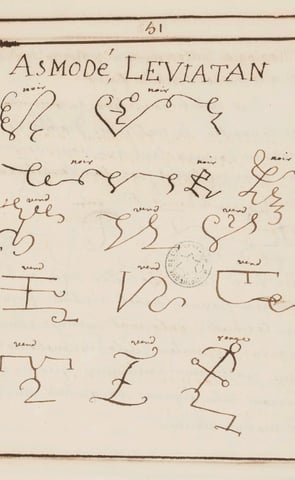 51
ASMODÉ, LEVIATAN
noir noir
noir noir noir
verd verd verd
verd verd verd
verd verd rouge